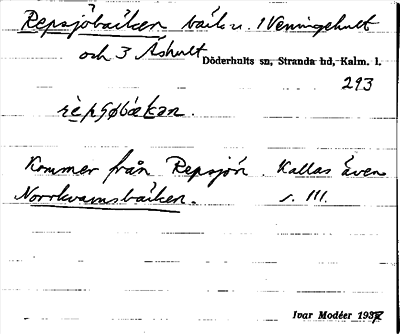 Repsjöbäcken bäck u. 1 Venningehult
och 3 Åshult
Döderhults sn, Stranda hd, Kalm. l.
293
rèpʂøbǽkan.
Kommer från Repsjön. Kallas även
Norrkvarnsbäcken. s. 111.
Ivar Modéer 1937